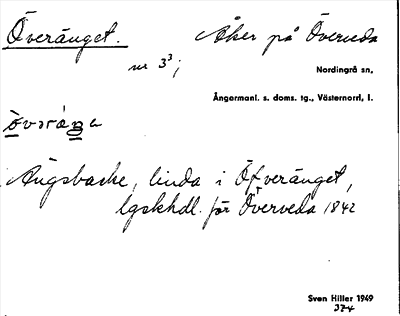 Överänget. Åker på Överveda
nr 3³;
Nordingrå sn,
Ångermanl. s. doms. tg., Västernorrl, l.
Ängsbacke, linda i Öfveränget,
lgskhdl. för Överveda 1842
Sven Hiller 1949
374